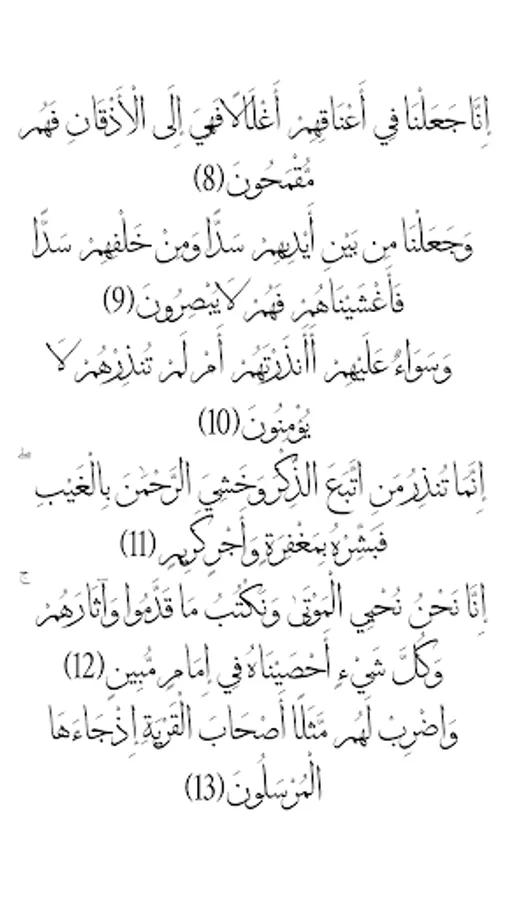 إِنَّا جَعَلْنَا فِي أَعْنَاقِهِمْ أَغْلَالًا فَهِيَ إِلَى الْأَذْقَانِ فَهُم
مُّقْمَحُونَ (8)
وَجَعَلْنَا مِن بَيْنِ أَيْدِيهِمْ سَدًّا وَمِنْ خَلْفِهِمْ سَدًّا
فَأَغْشَيْنَاهُمْ فَهُمْ لَا يُبْصِرُونَ (9)
وَسَوَاءٌ عَلَيْهِمْ أَأَنذَرْتَهُمْ أَمْ لَمْ تُنذِرْهُمْ لَا
يُؤْمِنُونَ (10)
إِنَّمَا تُنذِرُ مَنِ اتَّبَعَ الذِّكْرَ وَخَشِيَ الرَّحْمَٰنَ بِالْغَيْبِ ۖ
فَبَشِّرْهُ بِمَغْفِرَةٍ وَأَجْرٍ كَرِيمٍ (11)
إِنَّا نَحْنُ نُحْيِي الْمَوْتَىٰ وَنَكْتُبُ مَا قَدَّمُوا وَآثَارَهُمْ ۚ
وَكُلَّ شَيْءٍ أَحْصَيْنَاهُ فِي إِمَامٍ مُّبِينٍ (12)
وَاضْرِبْ لَهُم مَّثَلًا أَصْحَابَ الْقَرْيَةِ إِذْ جَاءَهَا
الْمُرْسَلُونَ (13)